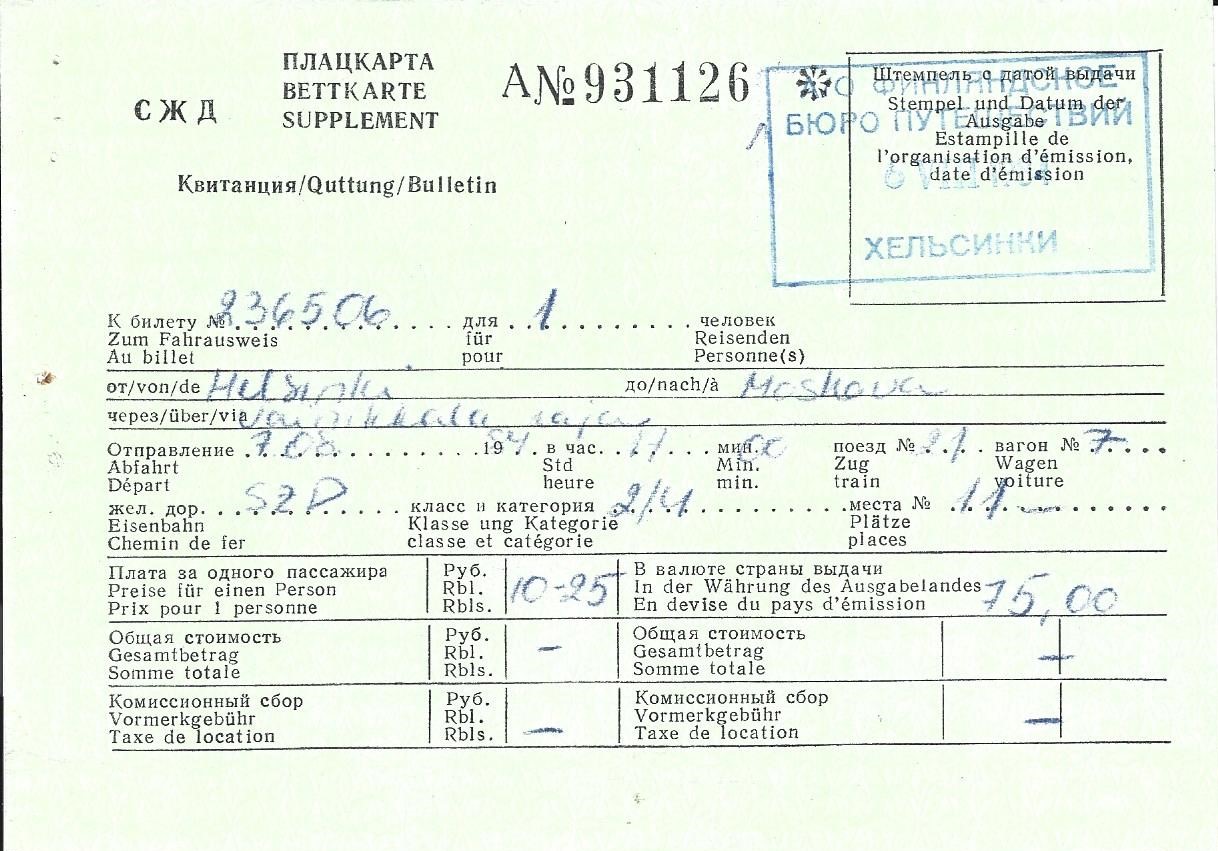 СЖД
ПЛАЦКАРТА
BETTKARTE
SUPPLEMENT
А№ 931126
Квитанция/Quttung/Bulletin
Штемпель с датой выдачи
Stempel und Datum der
Ausgabe
Estampille de
l'organisation d'émission,
date d'émission
А/О ФИНЛЯНДСКОЕ
БЮРО ПУТЕШЕСТВИЙ
ХЕЛЬСИНКИ
К билету № 236506 для 1 человек
Zum Fahrausweis für Reisenden
Au billet pour Personne(s)
от/von/de Helsinki до/nach/à Moskova
через/über/via Vainikkala raja
Отправление 7.08 1984 в час. 11 мин. 00 поезд № 21 вагон № 7
Abfahrt Std Min. Zug Wagen
Départ heure min. train voiture
жел. дор. SZD класс и категория 2/4 места № 11
Eisenbahn Klasse ung Kategorie Plätze
Chemin de fer classe et catégorie places
Плата за одного пассажира Руб. В валюте страны выдачи
Preise für einen Person Rbl. 10-25 In der Währung des Ausgabelandes 75,00
Prix pour 1 personne Rbls. En devise du pays d'émission
Общая стоимость Руб. Общая стоимость
Gesamtbetrag Rbl. — Gesamtbetrag —
Somme totale Rbls. Somme totale
Комиссионный сбор Руб. Комиссионный сбор
Vormerkgebühr Rbl. — Vormerkgebühr —
Taxe de location Rbls. Taxe de location